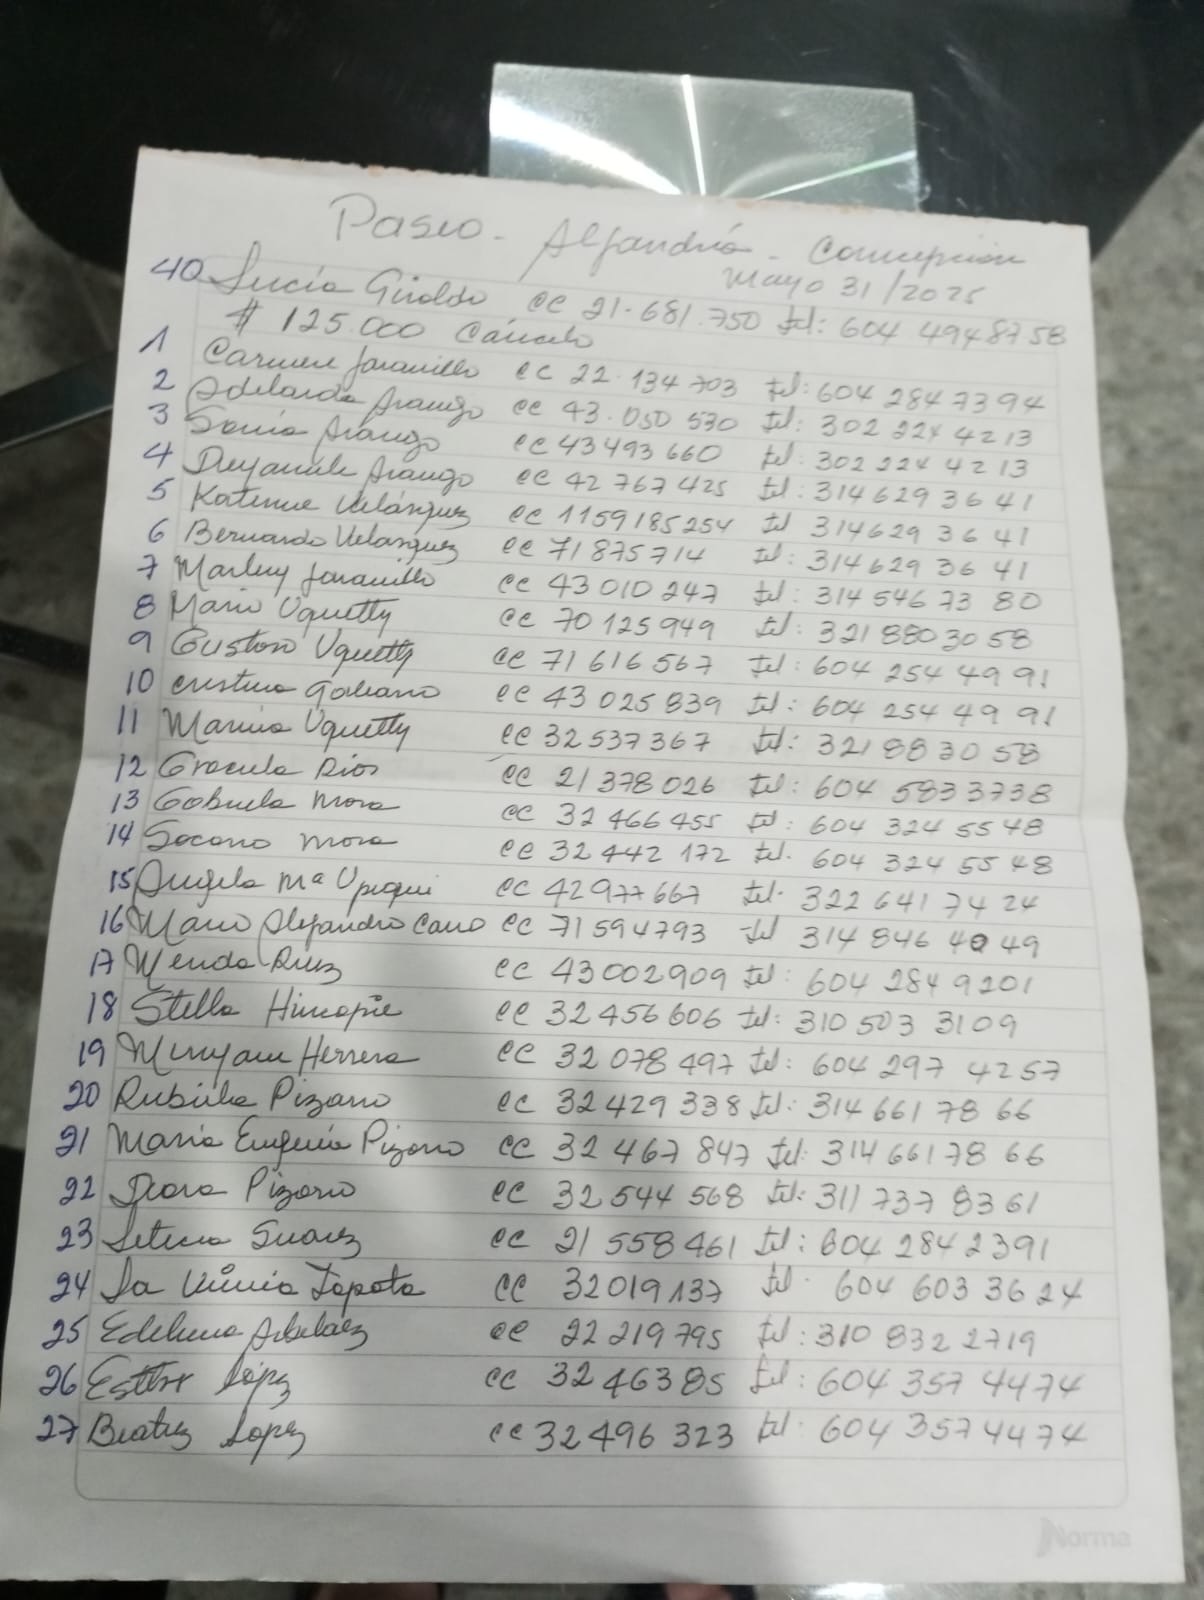 Paseo - Alejandría - Concepción
Mayo 31/2025
40 Lucía Giraldo cc 21.681.750 tel: 604 4948758
$ 125.000 Cáncelo
1 Carmen Jaramillo cc 22.134703 tel: 604 284 7394
2 Adelaida Arango cc 43.050 530 tel: 302 224 4213
3 Sonia Arango cc 43493660 tel: 302 224 4213
4 Deyanile Arango cc 42 767425 tel: 314 629 36 41
5 Katerine Velásquez cc 1159185254 tel 314629 36 41
6 Bernardo Velasquez cc 71 875714 tel: 314629 36 41
7 Marluy Jaramillo cc 43 010 247 tel: 314 546 73 80
8 Mario Uquetty cc 70 125 949 tel: 321 880 30 58
9 Gustavo Uquetty cc 71 616 567 tel: 604 254 49 91
10 Cristina Galeano cc 43 025 839 tel: 604 254 49 91
11 Marina Uquetty cc 32 537 367 tel: 321 88 30 58
12 Graciela Rios cc 21 378 026 tel: 604 583 3738
13 Gabriela Mora cc 32 466 455 tel: 604 324 55 48
14 Socorro Mora cc 32 442 172 tel. 604 324 55 48
15 Angela Mª Upegui cc 42977667 tel. 322 641 74 24
16 Mario Alejandro Cano cc 71 594793 tel 314 846 40 49
17 Ruiz cc 43 002909 tel: 604 284 9201
18 Stella Hincapie cc 32 456 606 tel: 310 503 3109
19 Miryam Herrera cc 32 078 497 tel: 604 297 4257
20 Rubiela Pizarro cc 32 429 338 tel: 314 661 78 66
21 María Eugenia Pizarro cc 32 467 847 tel: 314 661 78 66
22 Pizarro cc 32 544 568 tel: 311 737 8361
23 Leticia Suarez cc 21 558 461 tel: 604 284 2391
24 Zapata cc 32019137 tel. 604 603 36 24
25 Edelmira Arbelaez cc 22 219 795 tel: 310 832 2719
26 Esther López cc 32 463 85 tel: 604 357 4474
27 Beatriz Lopez cc 32 496 323 tel: 604 357 4474
Norma